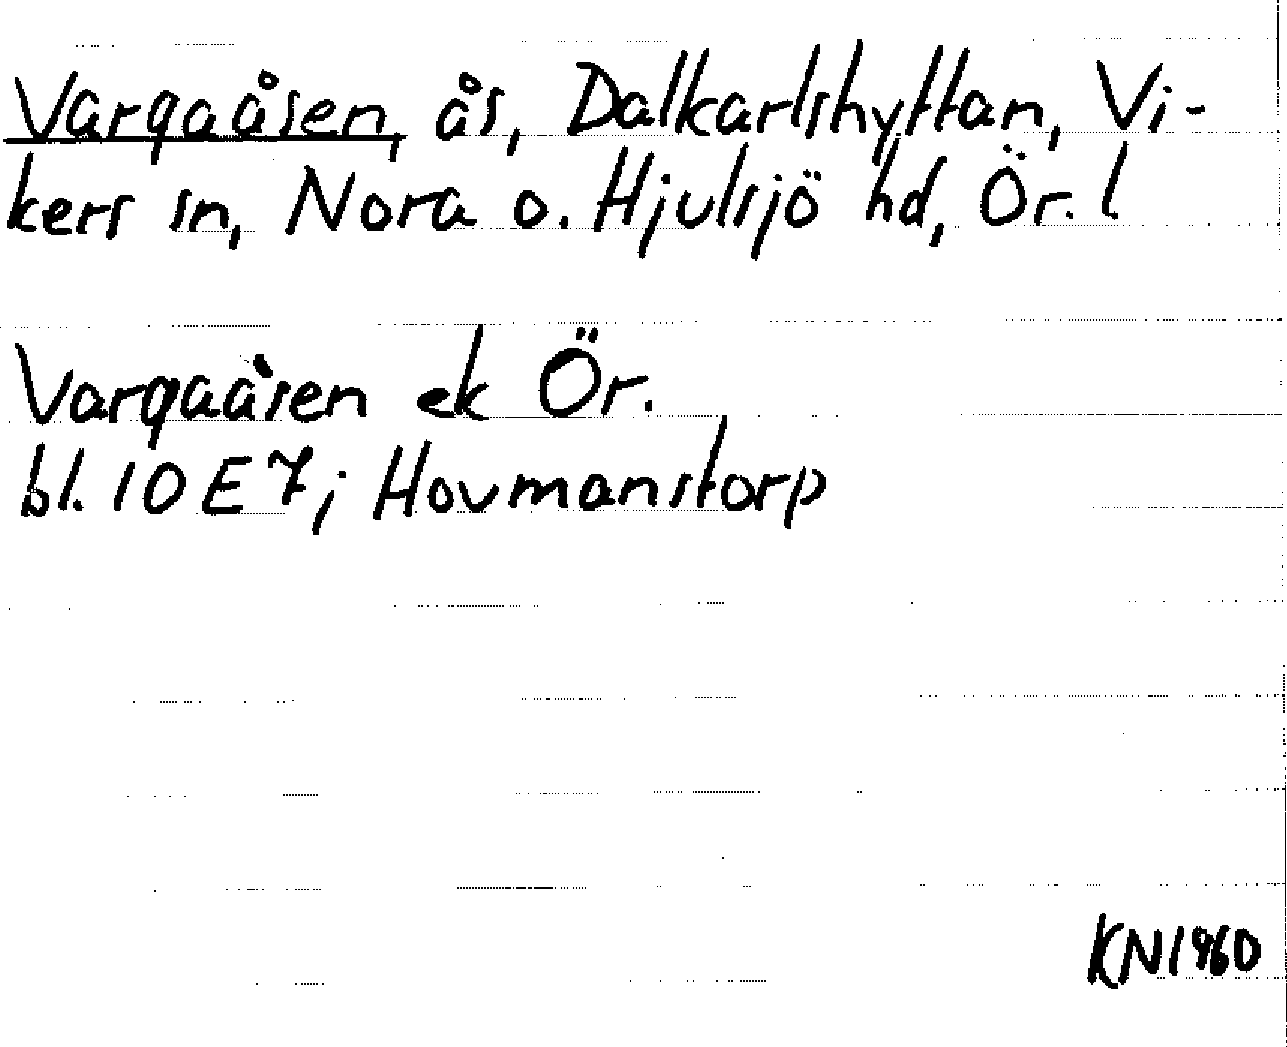 Vargaåsen, ås, Dalkarlshyttan, Vi-
kers sn, Nora o. Hjulsjö hd, Ör. l
Vargaåsen ek Ör.
bl. 10 E 7; Hovmanstorp
KN 1960